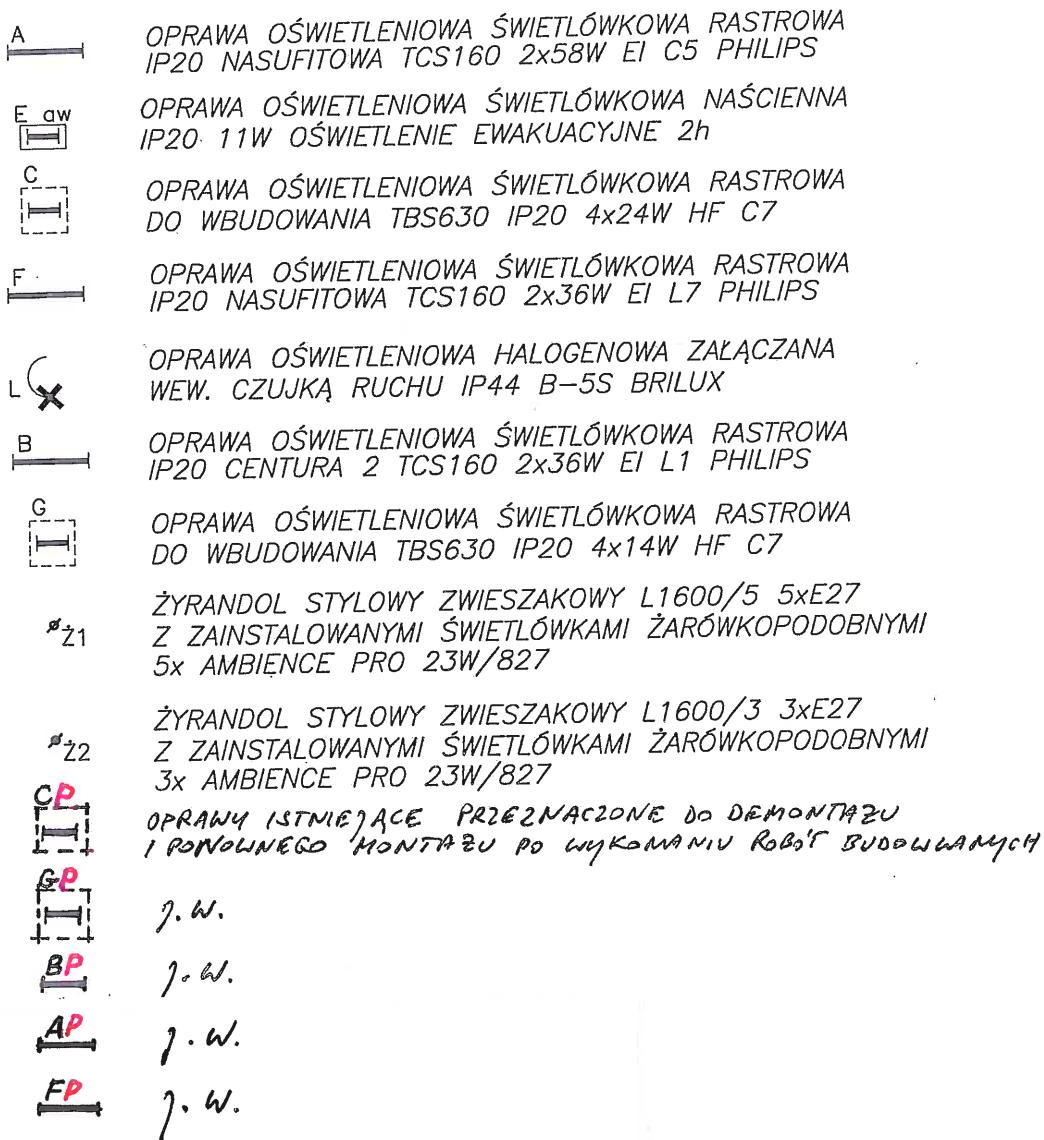 A
OPRAWA OŚWIETLENIOWA ŚWIETLÓWKOWA RASTROWA
IP20 NASUFITOWA TCS160 2x58W EI C5 PHILIPS
E aw
OPRAWA OŚWIETLENIOWA ŚWIETLÓWKOWA NAŚCIENNA
IP20 11W OŚWIETLENIE EWAKUACYJNE 2h
C
OPRAWA OŚWIETLENIOWA ŚWIETLÓWKOWA RASTROWA
DO WBUDOWANIA TBS630 IP20 4x24W HF C7
F
OPRAWA OŚWIETLENIOWA ŚWIETLÓWKOWA RASTROWA
IP20 NASUFITOWA TCS160 2x36W EI L7 PHILIPS
L
OPRAWA OŚWIETLENIOWA HALOGENOWA ZAŁĄCZANA
WEW. CZUJKĄ RUCHU IP44 B-5S BRILUX
B
OPRAWA OŚWIETLENIOWA ŚWIETLÓWKOWA RASTROWA
IP20 CENTURA 2 TCS160 2x36W EI L1 PHILIPS
G
OPRAWA OŚWIETLENIOWA ŚWIETLÓWKOWA RASTROWA
DO WBUDOWANIA TBS630 IP20 4x14W HF C7
ŻYRANDOL STYLOWY ZWIESZAKOWY L1600/5 5xE27
Ż1 Z ZAINSTALOWANYMI ŚWIETLÓWKAMI ŻARÓWKOPODOBNYMI
5x AMBIENCE PRO 23W/827
ŻYRANDOL STYLOWY ZWIESZAKOWY L1600/3 3xE27
Ż2 Z ZAINSTALOWANYMI ŚWIETLÓWKAMI ŻARÓWKOPODOBNYMI
3x AMBIENCE PRO 23W/827
CP
OPRAWY ISTNIEJĄCE PRZEZNACZONE DO DEMONTAŻU
I PONOWNEGO MONTAŻU PO WYKONANIU ROBÓT BUDOWLANYCH
GP
J.W.
BP J.W.
AP J.W.
FP J.W.